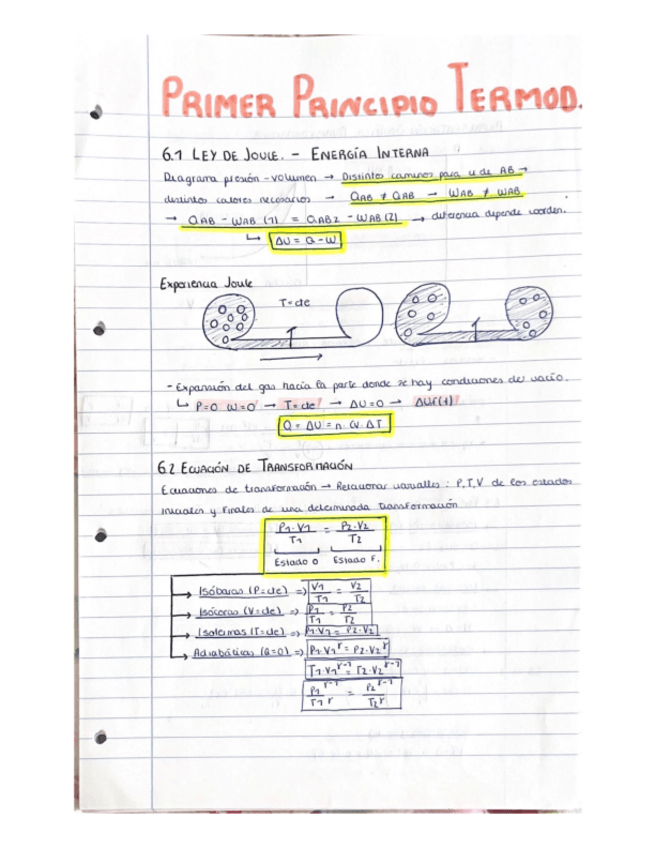 PRIMER PRINCIPIO TERMOD.
6.1 LEY DE JOULE. - ENERGÍA INTERNA
Diagrama presión-volumen → Distintos caminos para u de AB →
distintos calores necesarios → QAB ≠ QAB → WAB ≠ WAB
→ QAB - WAB (1) = QAB2 - WAB (2) → diferencia depende coorden.
↳ ΔU = Q - W
Experiencia Joule
T=cte
- Expansión del gas hacia la parte donde se hay condiciones de vacío.
↳ P=0 W=0 → T=cte → ΔU=0 → ΔUf(t)
Q = ΔU = n · Cv · ΔT
6.2 ECUACIÓN DE TRANSFORMACIÓN
Ecuaciones de transformación → Relacionar variables : P,T,V de los estados
iniciales y finales de una determinada transformación
P1·V1 / T1 = P2·V2 / T2
Estado 0 Estado F.
→ Isóbaras (P=cte) => V1/T1 = V2/T2
→ Isócoras (V=cte) => P1/T1 = P2/T2
→ Isotermas (T=cte) => P1·V1 = P2·V2
→ Adiabáticas (Q=0) => P1·V1^γ = P2·V2^γ
T1·V1^γ-1 = T2·V2^γ-1
P1^γ-1 / T1^γ = P2^γ-1 / T2^γ